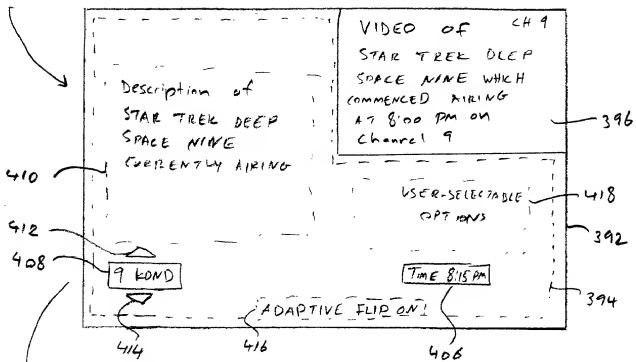 VIDEO OF CH 9
STAR TREK DEEP
SPACE NINE WHICH
COMMENCED AIRING
AT 8:00 PM ON
Channel 9
396
Description of
STAR TREK DEEP
SPACE NINE
CURRENTLY AIRING
410
USER-SELECTABLE
OPTIONS
418
392
412
408
9 KDND
TIME 8:15 PM
394
ADAPTIVE FLIP ON!
414
416
406